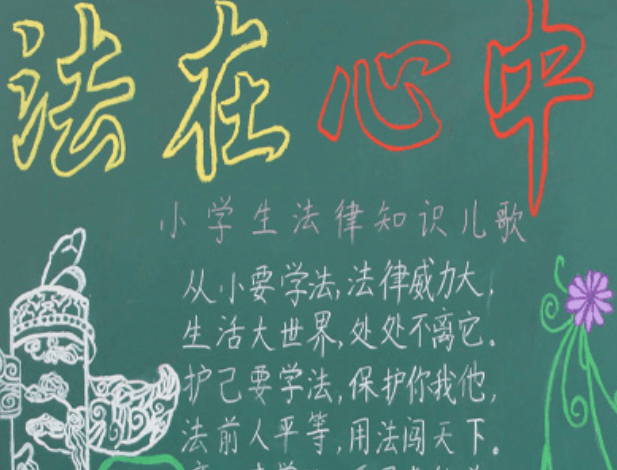 法在心中
小学生法律知识儿歌
从小要学法,法律威力大.
生活大世界,处处不离它。
护己要学法,保护你我他,
法前人平等,用法闯天下。